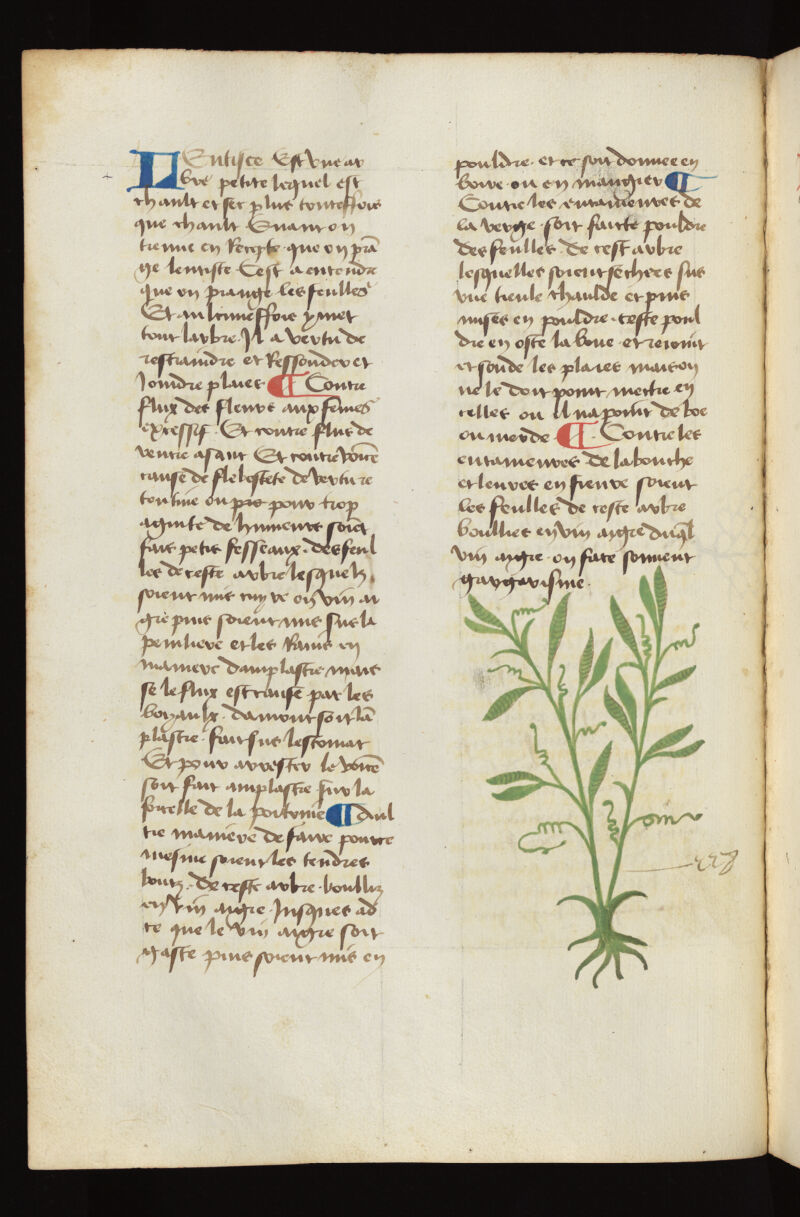 LEntisce Est une ar
bre petite lequel est
chault et sec plus touteffois
que chault Quant on
treuue en Recepte que on prā
ge lentisce Cest a entendre
que on prange les feulles
Et aulcuneffois y met
tout larbre Il a vertu de
restraindre et Ressonder et
Joindre plaies ¶ Contre
flux des fleurs aux fēmes
excessif Et contre flus de
ventre asaut Et contre vōce
cause de fleblestete de vertu re
tentiue ou pour trop
aguite de humeurs soiēt
fais petis fesseaux des feul
les de ceste arbre lesquelz
soient mis cuyre on vin ai
gre puis soient mis sus la
penilliere et les Rains en
maniere damplastre mais
se le flux est cause par les
boyaulx damont soit lā
plastre fait sus lestomac
Et pour arrester le vōce
soit fait amplastre sur la
forcelle de la poitrine ¶ Aul
tre maniere de faire pource
mesme soient les tendres
boutz de ceste arbre boulliz
en vin aigre Jusques ad
ce que le vin aigre soit
gaste puis soient mis en
pouldre et ce soit donnee en
boire ou en mangier ¶
Contre les entameures de
la verge soit faicte pouldre
des feulles de cest arbre
lesquelles soient sechees sus
vne tieule chaulde et puis
mises en pouldre ceste poul
dre en oste la boue et reioint
et sonde les plaies mais on
ne le doit point mectre en
celles ou Il na point de boe
ou merde ¶ Contre les
entameures de la bouche
et leures en fieure soient
les feulles de ceste arbre
boullies en vin aigre duql
vin aigre on face souuent
gargarisme
228